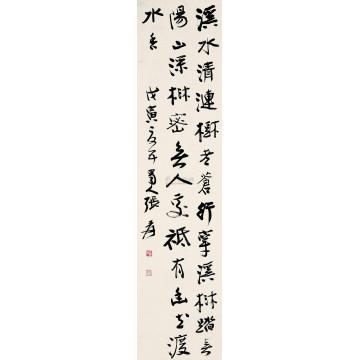 溪水清漣樹老蒼行穿溪樹踏春
陽山深樹密無人處祗有幽花渡
水香 戊寅 蜀人張爰